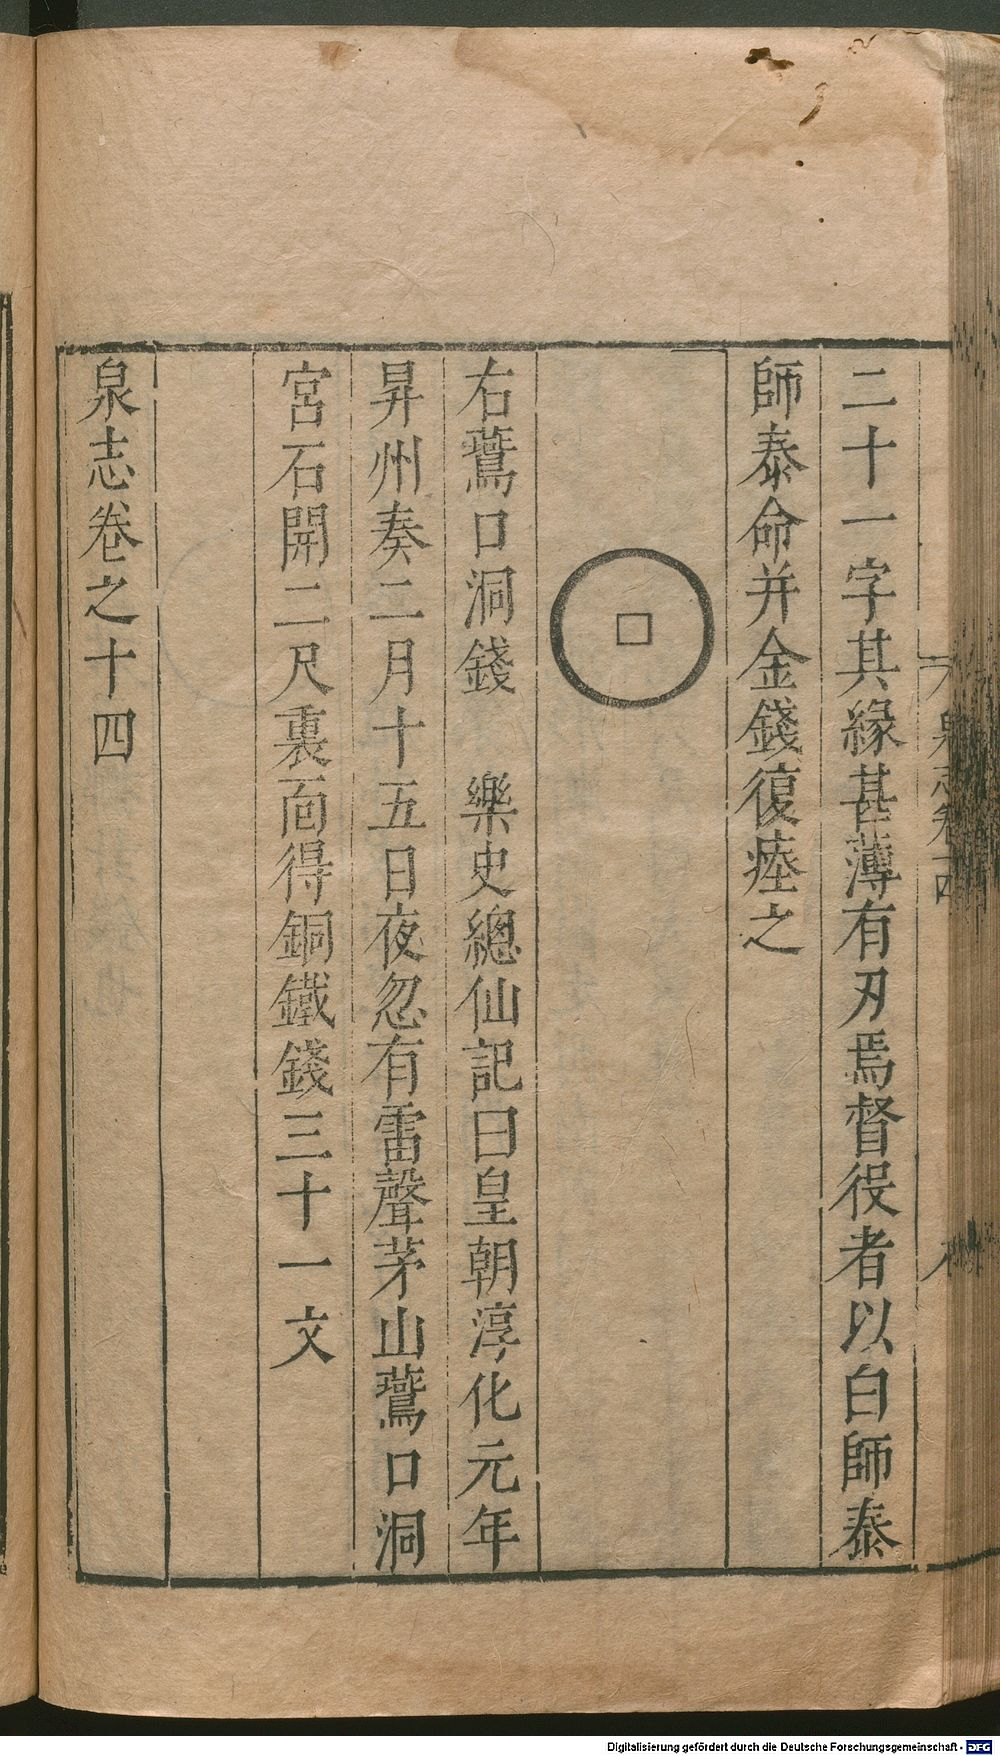 二十一字其緣甚薄有刃焉督役者以白師泰
師泰命并金錢復瘞之
右鷰口洞錢　樂史總仙記曰皇朝淳化元年
昇州奏二月十五日夜忽有雷聲茅山鷰口洞
宮石開二尺裏面得銅鐵錢三十一文
泉志卷之十四
泉志卷十四
Digitalisierung gefördert durch die Deutsche Forschungsgemeinschaft - DFG